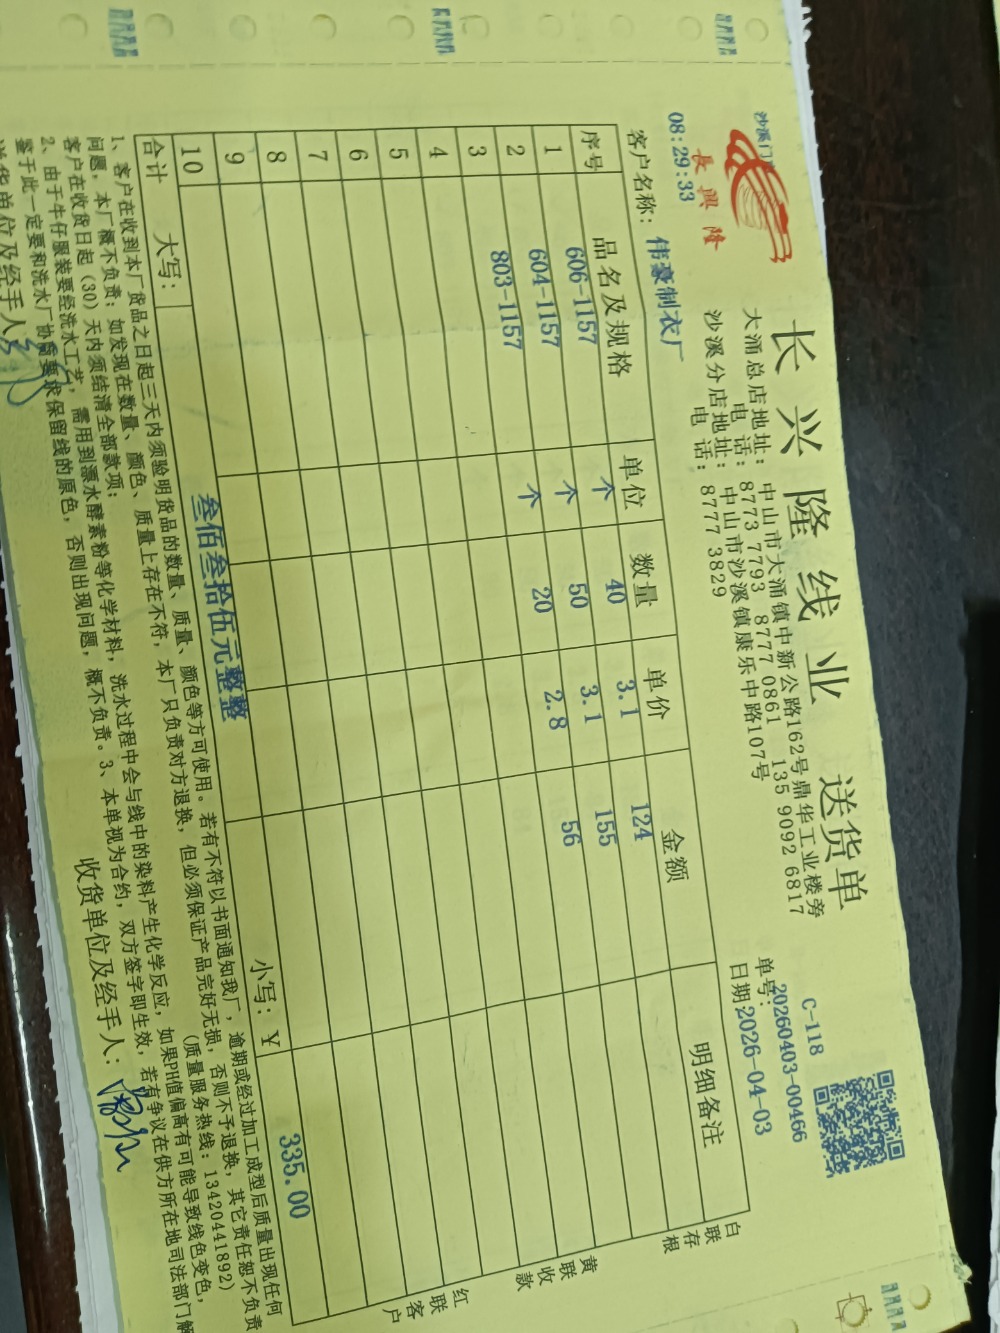 长兴隆线业 送货单
長興隆
沙溪门
大涌总店地址：中山市大涌镇中新公路162号鼎华工业楼旁
电 话：8773 7793 8777 0861 135 9092 6817
沙溪分店地址：中山市沙溪镇康乐中路107号
电 话：8777 3829
C-118
单号：20260403-00466
日期：2026-04-03
08:29:33
客户名称：伟豪制衣厂
序号 品名及规格 单位 数量 单价 金额 明细备注
1 606-1157 个 40 3.1 124
2 604-1157 个 50 3.1 155
3 803-1157 个 20 2.8 56
4
5
6
7
8
9
10
合计 大写：叁佰叁拾伍元整整 小写：¥ 335.00
白联存根
黄联收款
红联客户
1、客户在收到本厂货品之日起三天内须验明货品的数量、质量、颜色等方可使用。若有不符以书面通知我厂，逾期或经过加工成型后质量出现任何
问题，本厂概不负责；如发现在数量、颜色、质量上存在不符，本厂只负责对方退换，但必须保证产品完好无损，否则不予退换，其它责任恕不负责
客户在收货日起（30）天内须结清全部款项； （质量服务热线：13420441892）
2、由于牛仔服装要经洗水工艺，需用到漂水酵素粉等化学材料，洗水过程中会与线中的染料产生化学反应，如果PH值偏高有可能导致线色变色，
鉴于此一定要和洗水厂协商要求保留线的原色，否则出现问题，概不负责。3、本单视为合约，双方签字即生效，若有争议在供方所在地司法部门解
送货单位及经手人 收货单位及经手人：